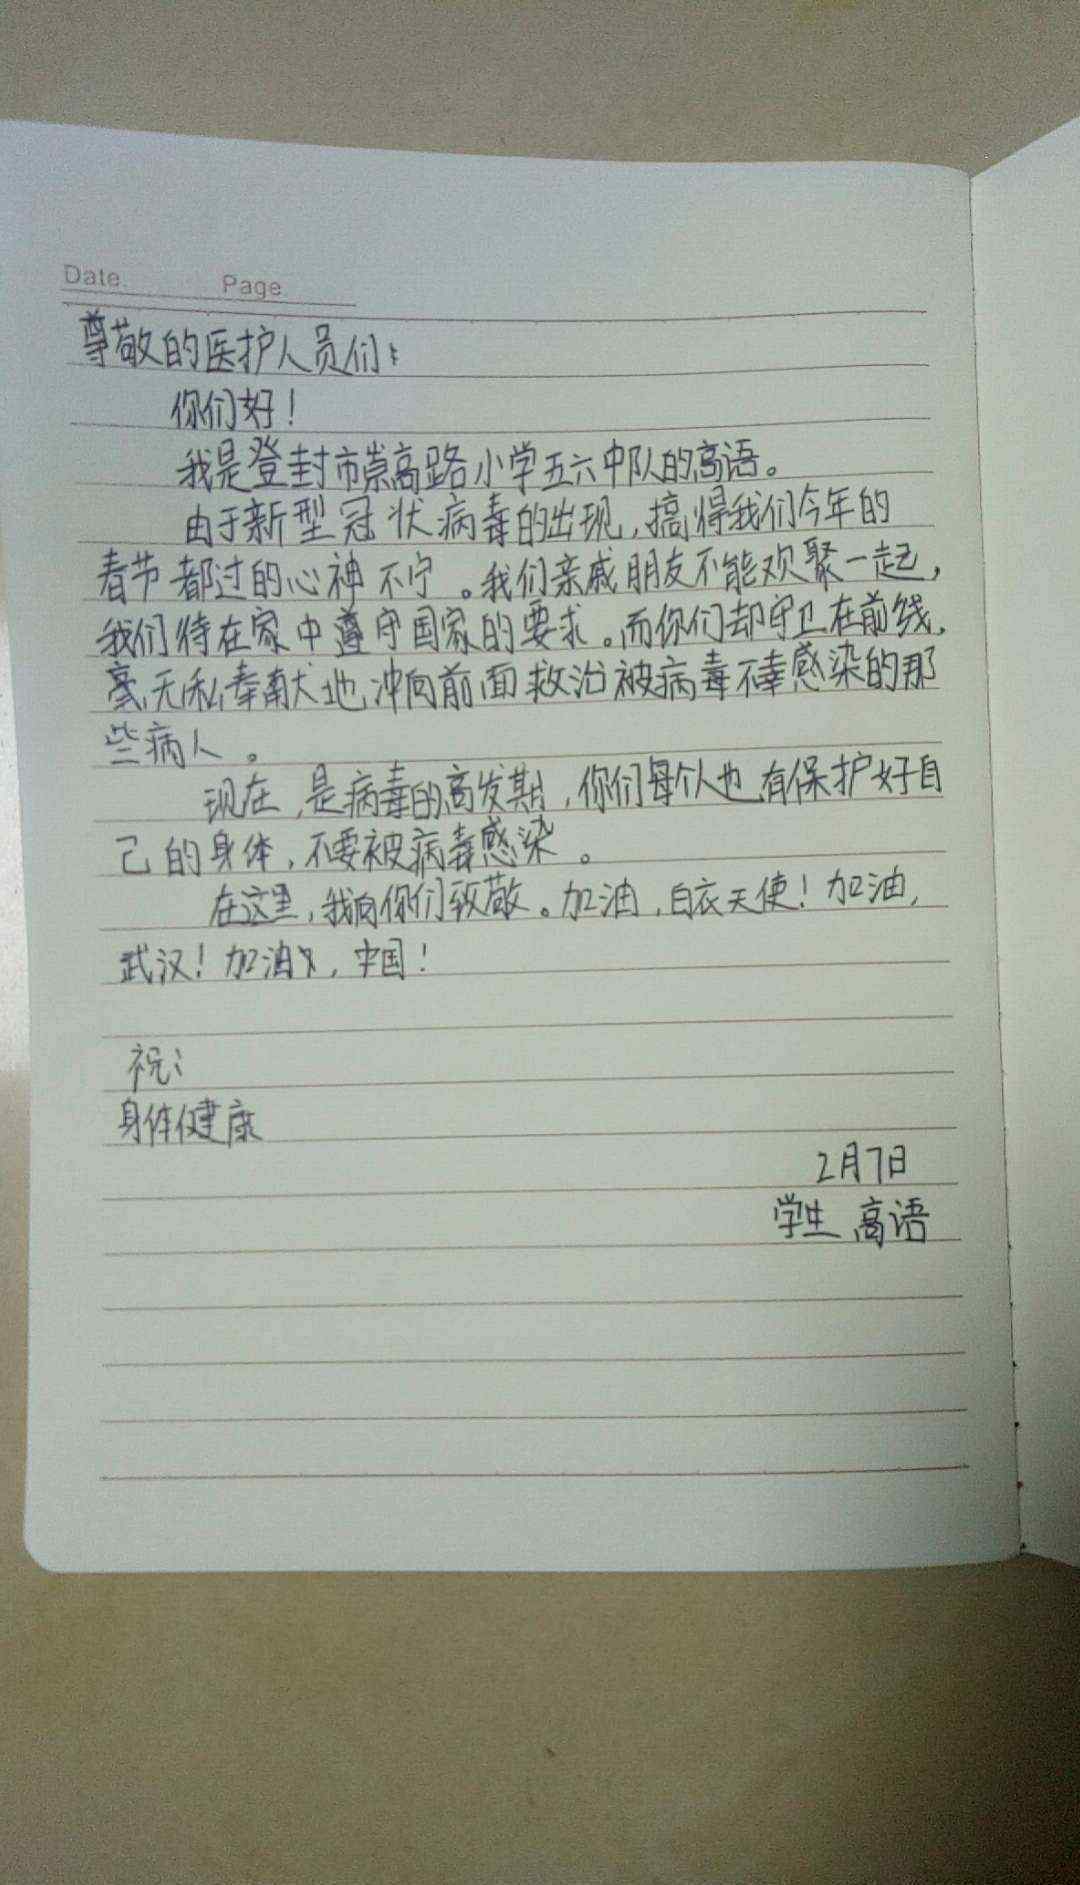 Date
Page
尊敬的医护人员们:
你们好!
我是登封市崇高路小学五六中队的高语。
由于新型冠状病毒的出现,搞得我们今年的
春节都过的心神不宁。我们亲戚朋友不能欢聚一起,
我们待在家中遵守国家的要求。而你们却守卫在前线,
毫无私奉献大地冲向前面救治被病毒不幸感染的那
些病人。
现在,是病毒的高发期,你们每个人也有保护好自
己的身体,不要被病毒感染。
在这里,我向你们致敬。加油,白衣天使!加油,
武汉!加油,中国!
祝:
身体健康
2月7日
学生 高语